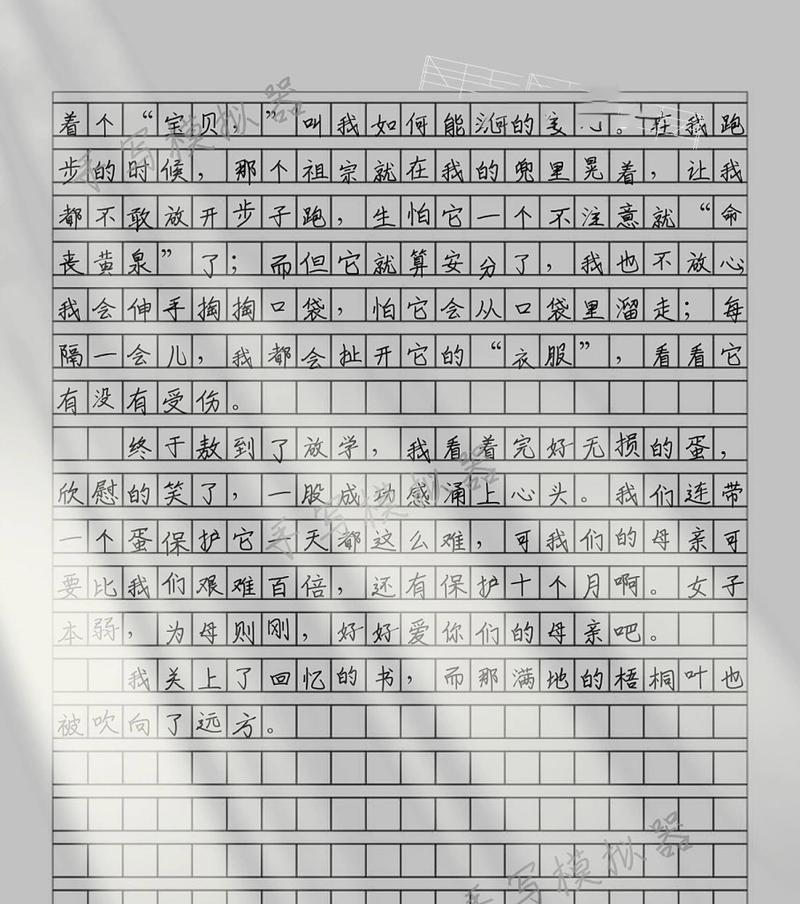 着个“宝贝，”叫我如何能的心。在我跑
步的时候，那个祖宗就在我的兜里晃着，让我
都不敢放开步子跑，生怕它一个不注意就“命
丧黄泉”了；而但它就算安分了，我也不放心
我会伸手掏掏口袋，怕它会从口袋里溜走；每
隔一会儿，我都会扯开它的“衣服”，看看它
有没有受伤。
终于敖到了放学，我看着完好无损的蛋，
欣慰的笑了，一股成功感涌上心头。我们连带
一个蛋保护它一天都这么难，可我们的母亲可
要比我们艰难百倍，还有保护十个月啊。女子
本弱，为母则刚，好好爱你们的母亲吧。
我关上了回忆的书，而那满地的梧桐叶也
被吹向了远方。
手写模拟器
手写模拟器
手写模拟器